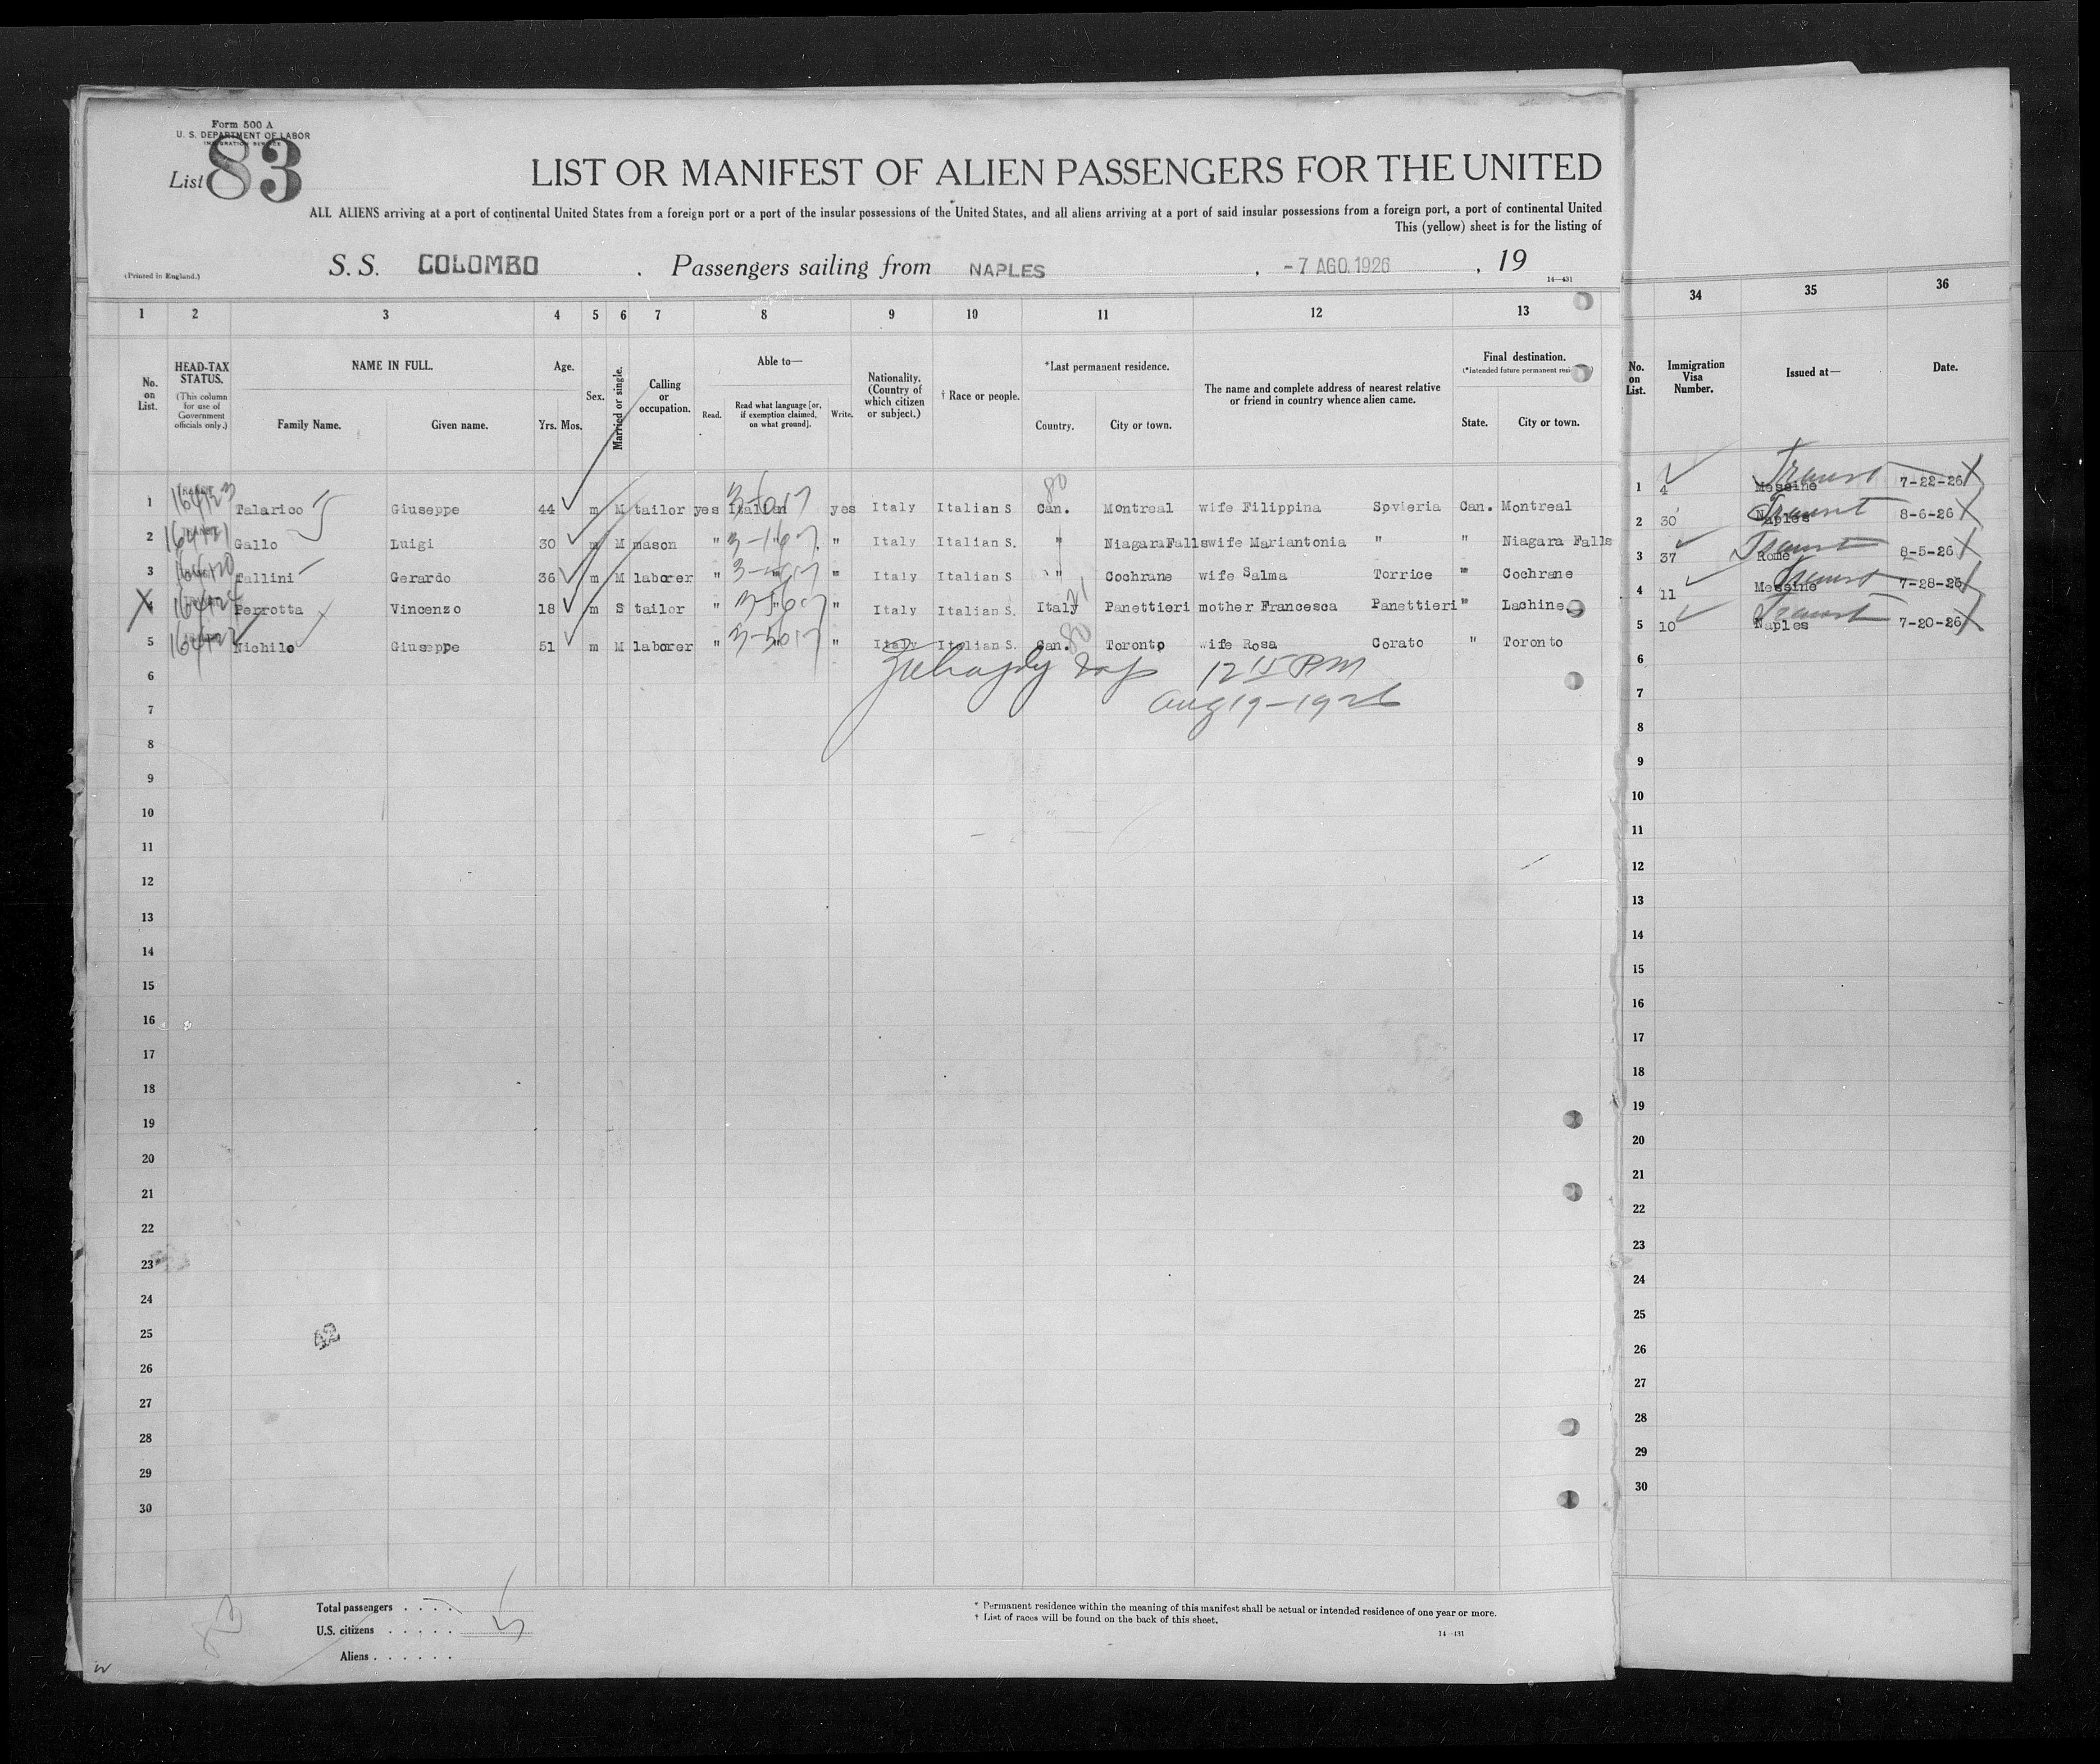 Form 500 A
U. S. DEPARTMENT OF LABOR
IMMIGRATION SERVICE
List 83
LIST OR MANIFEST OF ALIEN PASSENGERS FOR THE UNITED
ALL ALIENS arriving at a port of continental United States from a foreign port or a port of the insular possessions of the United States, and all aliens arriving at a port of said insular possessions from a foreign port, a port of continental United
This (yellow) sheet is for the listing of
(Printed in England.)
S. S. COLOMBO , Passengers sailing from NAPLES , -7 AGO. 1926 , 19
14—431
1 2 3 4 5 6 7 8 9 10 11 12 13 34 35 36
No. on List.
HEAD-TAX STATUS.
(This column for use of Government officials only.)
NAME IN FULL.
Family Name. Given name.
Age.
Yrs. Mos.
Sex.
Married or single.
Calling or occupation.
Able to—
Read. Read what language [or, if exemption claimed, on what ground]. Write.
Nationality. (Country of which citizen or subject.)
† Race or people.
*Last permanent residence.
Country. City or town.
The name and complete address of nearest relative or friend in country whence alien came.
Final destination.
(*Intended future permanent
State. City or town.
No. on List.
Immigration Visa Number.
Issued at—
Date.
1 Talarico Giuseppe 44 m M tailor yes Italian yes Italy Italian S Can. Montreal wife Filippina Sovieria Can. Montreal
2 Gallo Luigi 30 m M mason " " " Italy Italian S. " Niagara Falls wife Mariantonia " " Niagara Falls
3 Tallini Gerardo 36 m M laborer " " " Italy Italian S " Cochrane wife Salma Torrice " Cochrane
4 Perrotta Vincenzo 18 m S tailor " " " Italy Italian S. Italy Panettieri mother Francesca Panettieri " Lachine
5 Nichilo Giuseppe 51 m M laborer " " " Italy Italian S. Can. Toronto wife Rosa Corato " Toronto
80
21
80
12 15 PM
Aug 19-1926
6
7
8
9
10
11
12
13
14
15
16
17
18
19
20
21
22
23
24
25
26
27
28
29
30
1 4 Messine Transit 7-22-26 X
2 30 Naples Transit 8-6-26 X
3 37 Rome Transit 8-5-26 X
4 11 Messine Transit 7-28-26 X
5 10 Naples Transit 7-20-26 X
6
7
8
9
10
11
12
13
14
15
16
17
18
19
20
21
22
23
24
25
26
27
28
29
30
Total passengers . . . .
U.S. citizens . . . . . 5
Aliens . . . . . .
* Permanent residence within the meaning of this manifest shall be actual or intended residence of one year or more.
† List of races will be found on the back of this sheet.
14—431